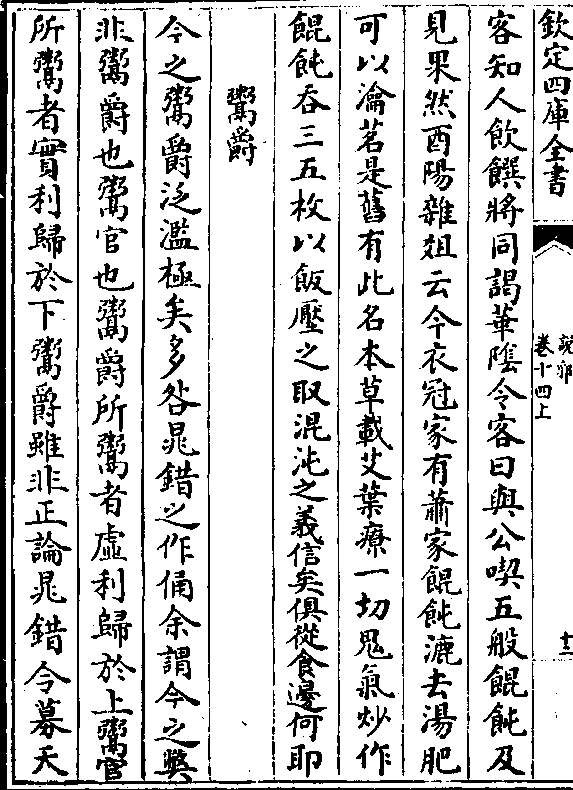 欽定四庫全書
說郛
卷十四上
十三
客知人飲饌將同謁華陰令客曰與公喫五般餛飩及
見果然酉陽雜俎云今衣冠家有蕭家餛飩漉去湯肥
可以瀹茗是舊有此名本草載艾葉療一切鬼氣炒作
餛飩吞三五枚以飯壓之取混沌之義信矣俱從食邊何耶
鬻爵
今之鬻爵泛濫極矣多咎晁錯之作俑余謂今之獘
非鬻爵也鬻官也鬻爵所鬻者虛利歸於上鬻官
所鬻者實利歸於下鬻爵雖非正論晁錯令募天